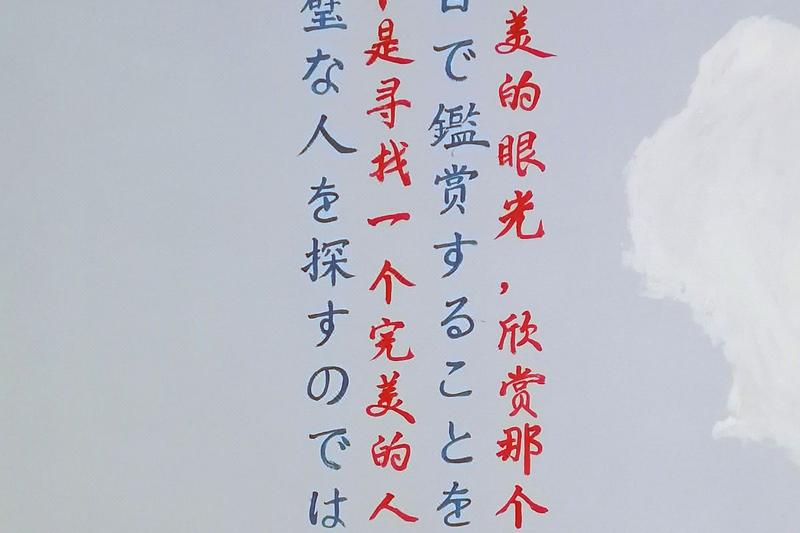 美的眼光，欣赏那个
で鑑賞することを
是寻找一个完美的人
璧な人を探すのでは